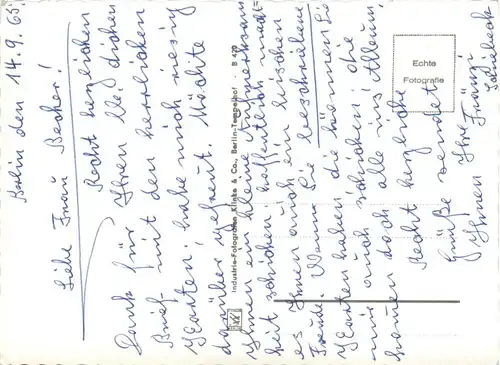 Berlin den 14.9.65.
Liebe Frau Becher!
Recht herzlichen
Dank für Ihren lb. dicken
Brief mit den herrlichen
Karten, habe mich riesig
darüber gefreut. Möchte
Ihnen eine kleine Aufmerksam=
keit schicken hoffentlich macht
es Ihnen auch ein bischen
Freude. Wenn Sie beschriebene
Karten haben, die können Sie
mir auch schicken, die
kommen doch alle ins Album.
Recht herzliche
Grüße sendet
Ihnen Ihre
Industrie-Fotografen Klinke & Co., Berlin-Tempelhof · B 420
Echte
Fotografie